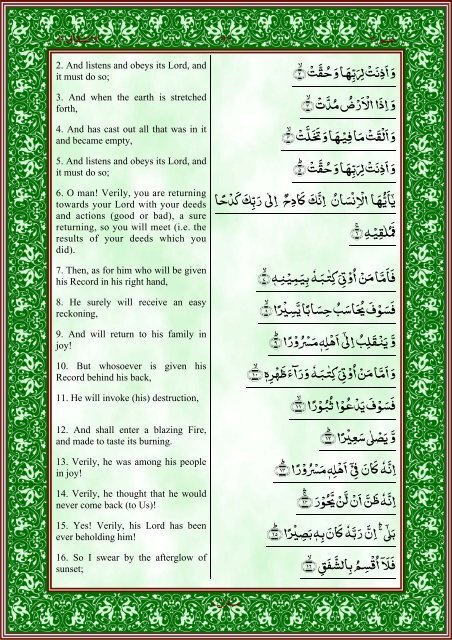 2. And listens and obeys its Lord, and
it must do so;
3. And when the earth is stretched
forth,
4. And has cast out all that was in it
and became empty,
5. And listens and obeys its Lord, and
it must do so;
6. O man! Verily, you are returning
towards your Lord with your deeds
and actions (good or bad), a sure
returning, so you will meet (i.e. the
results of your deeds which you
did).
7. Then, as for him who will be given
his Record in his right hand,
8. He surely will receive an easy
reckoning,
9. And will return to his family in
joy!
10. But whosoever is given his
Record behind his back,
11. He will invoke (his) destruction,
12. And shall enter a blazing Fire,
and made to taste its burning.
13. Verily, he was among his people
in joy!
14. Verily, he thought that he would
never come back (to Us)!
15. Yes! Verily, his Lord has been
ever beholding him!
16. So I swear by the afterglow of
sunset;
وَاَذِنَتْ لِرَبِّهَا وَحُقَّتْ
وَاِذَا الْاَرْضُ مُدَّتْ
وَاَلْقَتْ مَا فِيْهَا وَتَخَلَّتْ
وَاَذِنَتْ لِرَبِّهَا وَحُقَّتْ
يٰۤاَيُّهَا الْاِنْسَانُ اِنَّكَ كَادِحٌ اِلٰى رَبِّكَ كَدْحًا
فَمُلٰقِيْهِ
فَاَمَّا مَنْ اُوْتِيَ كِتٰبَهٗ بِيَمِيْنِهٖ
فَسَوْفَ يُحَاسَبُ حِسَابًا يَّسِيْرًا
وَّيَنْقَلِبُ اِلٰۤى اَهْلِهٖ مَسْرُوْرًا
وَاَمَّا مَنْ اُوْتِيَ كِتٰبَهٗ وَرَآءَ ظَهْرِهٖ
فَسَوْفَ يَدْعُوْا ثُبُوْرًا
وَّيَصْلٰى سَعِيْرًا
اِنَّهٗ كَانَ فِيْۤ اَهْلِهٖ مَسْرُوْرًا
اِنَّهٗ ظَنَّ اَنْ لَّنْ يَّحُوْرَ
بَلٰۤى اِنَّ رَبَّهٗ كَانَ بِهٖ بَصِيْرًا
فَلَاۤ اُقْسِمُ بِالشَّفَقِ